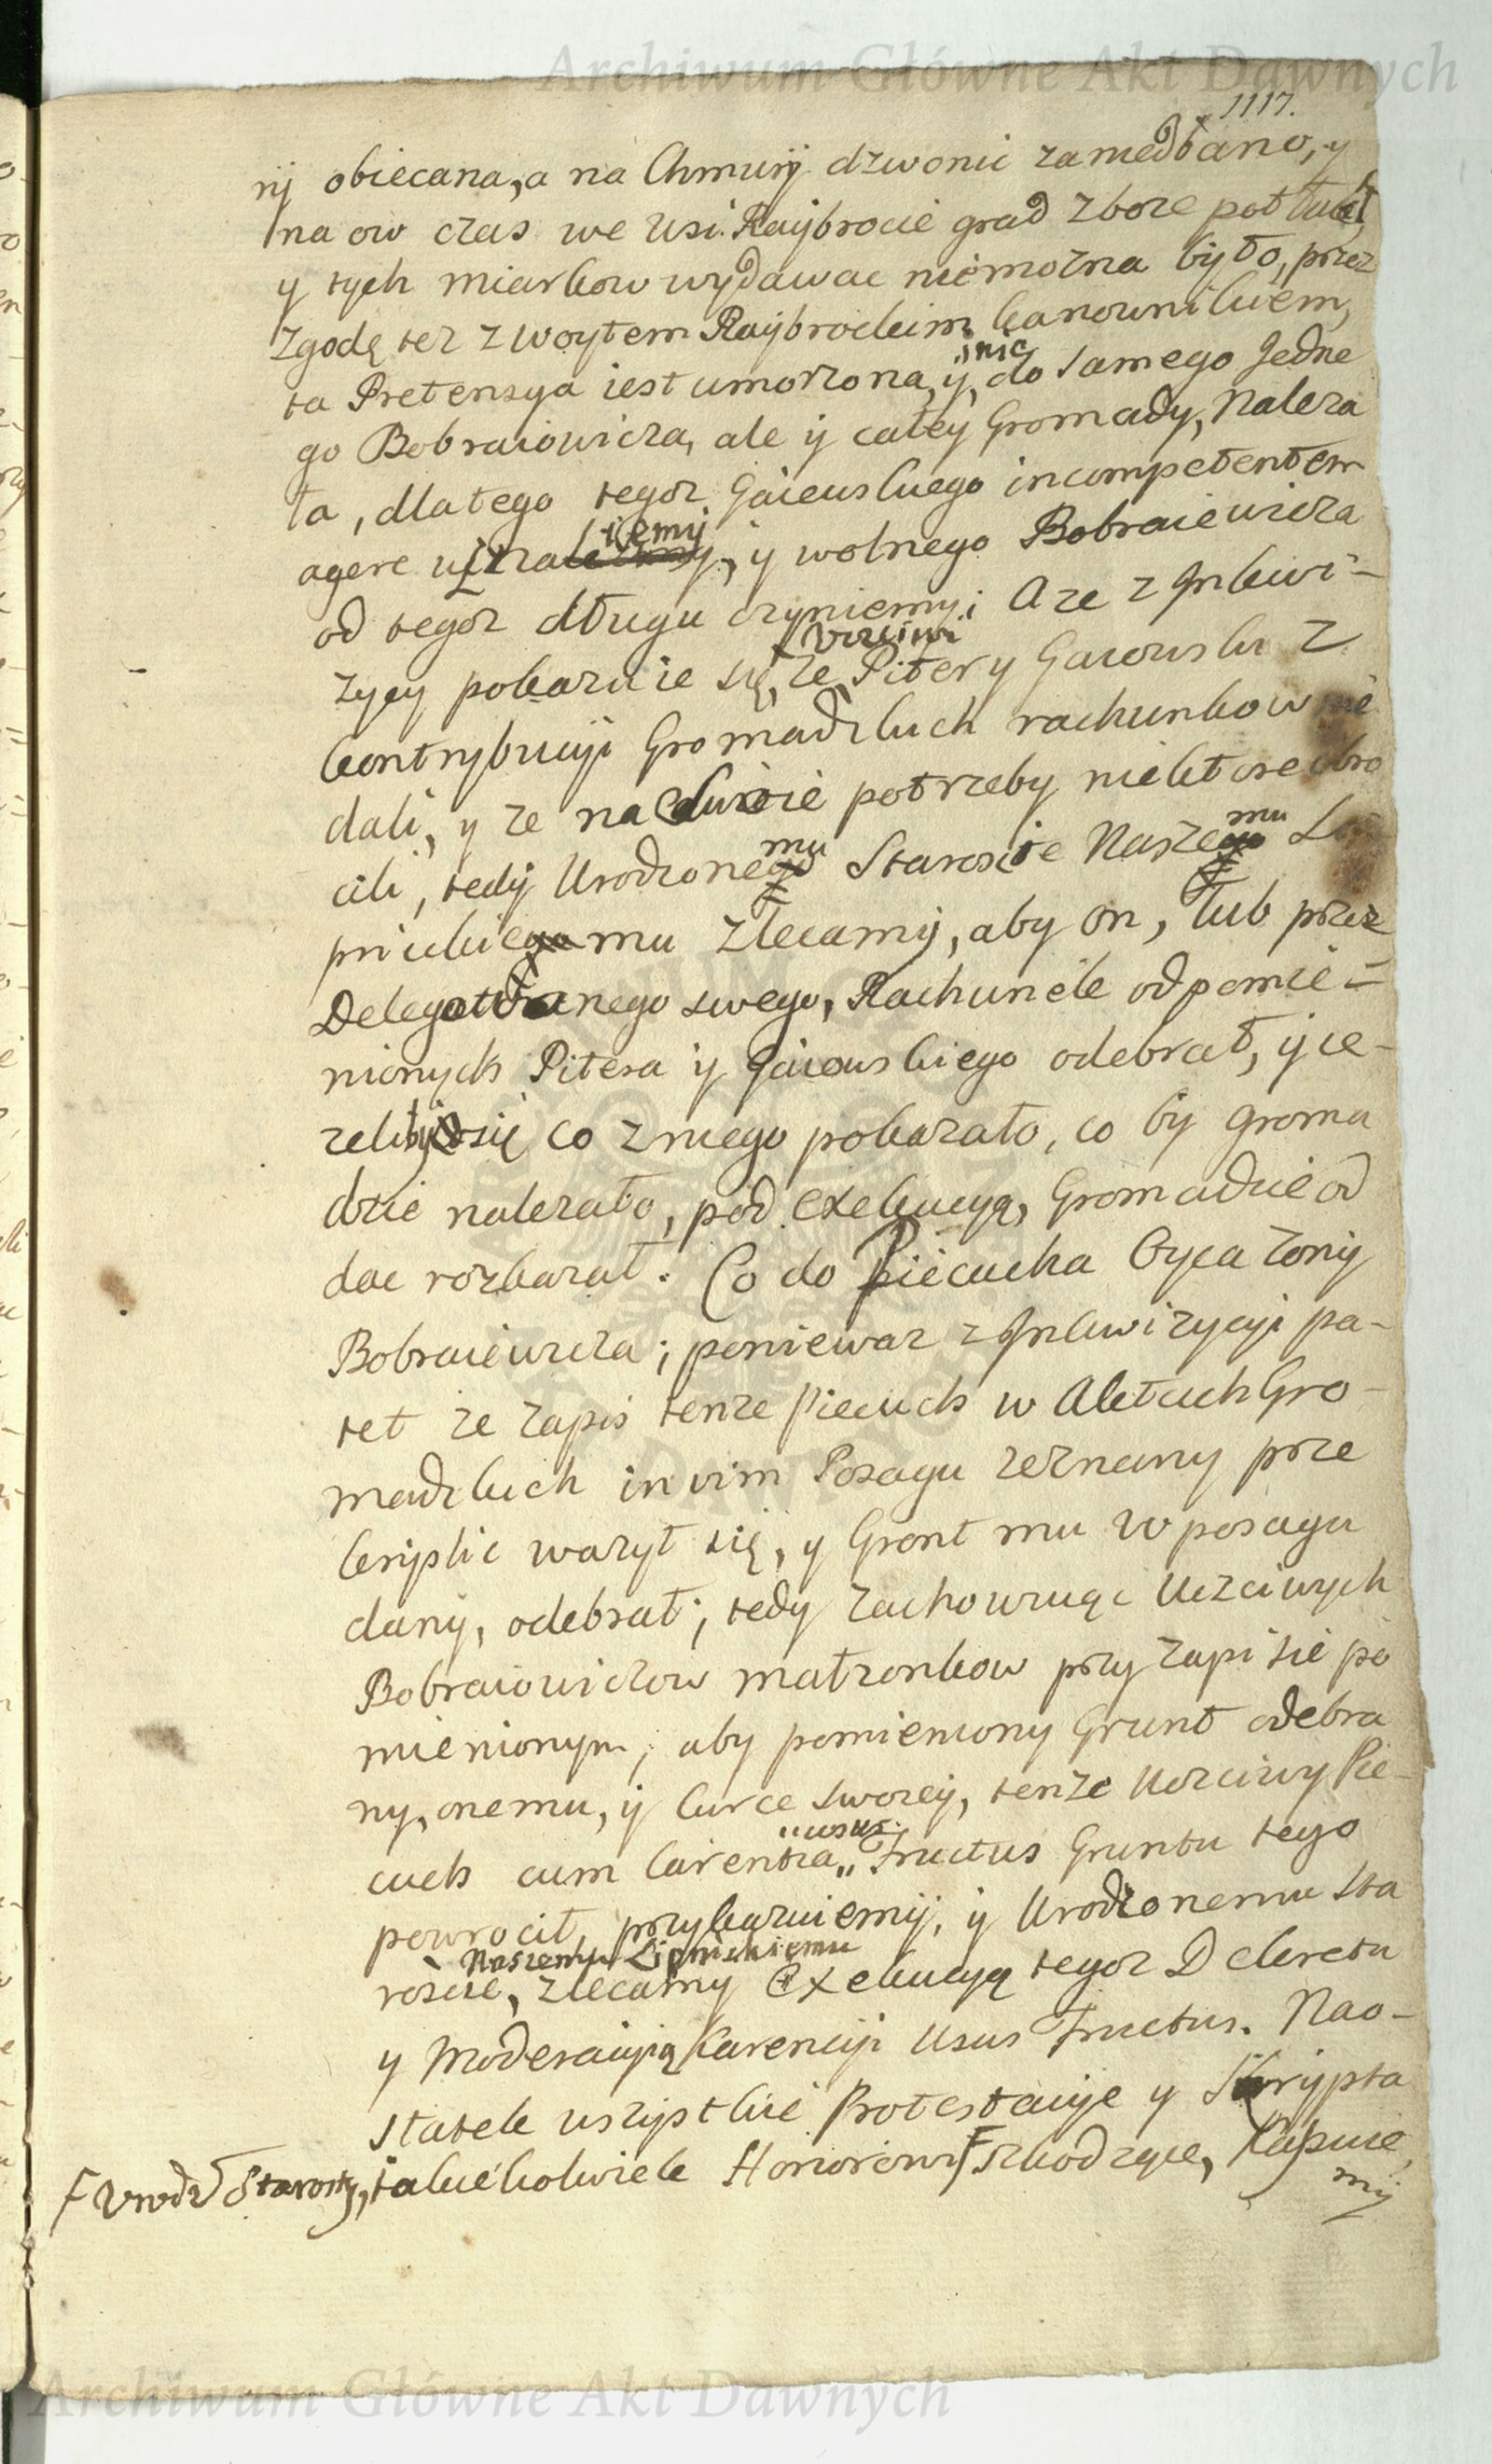 Archiwum Główne Akt Dawnych
1117.
nÿ obiecana, a na Chmurÿ dzwonic zamedbano, y
na ow czas we wsi Raÿbrocie grad zboze potłukł,
y tych miarkow wydawac niemozna było, przez
zgodę tez z woytem Raÿbrockim kanownikiem,
ta Pretensya iest umorzona, ÿ nie do samego Jedne
go Bobraiowicza, ale ÿ całeÿ Gromady, naleza
ła, dlatego tegoz Gaiewskiego incompetentem
agere uznaiemÿ, ÿ wolnego Bobraiewicza
od tegoz długu czyniemy; A ze z Inkwi-
zycy pokazuie się, ze Uczciwi Piter y Gaiowski z
kontrybucÿi Gromadzkich rachunkow nie
dali, y ze na swoie potrzeby niektore obro
cili, tedÿ Urodzonemu Staroscie Naszemu Li
pnickiemu zlecamÿ, aby on, lub przez
Delegowanego swego, Rachunek od pomie=
nionych Pitera ÿ Gaiewskiego odebrał, ÿ ie-
zeliby się co z niego pokazało, co by groma
dzie nalezało, pod exekucyą, Gromadzie od
dac rozkazał. Co do Piecucha Oyca Zonÿ
Bobraiewicza; poniewaz z Inkwizycÿi pa-
tet ze zapis tenze Piecuch w Aktach Gro-
madzkich in vim Posagu zeznany prze
kryslic wazył się, y Gront mu w posagu
danÿ, odebrał; tedy zachowuiąc Uczciwych
Bobraiowiczow małzonkow przy zapisie po
mienionym, aby pomieniony Grunt odebra
ny, onemu, ÿ Curce swoieÿ, tenze Uczciwy Pie-
cuch cum Carentia usus Fructus Gruntu tego
powrocił, przykazuiemÿ, ÿ Urodzonemu Sta
roscie, Naszemu Lipnickiemu zlecamy Exekucyą tegoz Dekretu
y Moderacyią Karencÿi Usus Fructus. Nao-
statek wszystkie Protestacÿe y Skrypta
iakiekolwiek Honorowi Ƒ szkodzące, Kassuie
mÿ
Ƒ Urodz Starosty,
Archiwum Główne Akt Dawnych